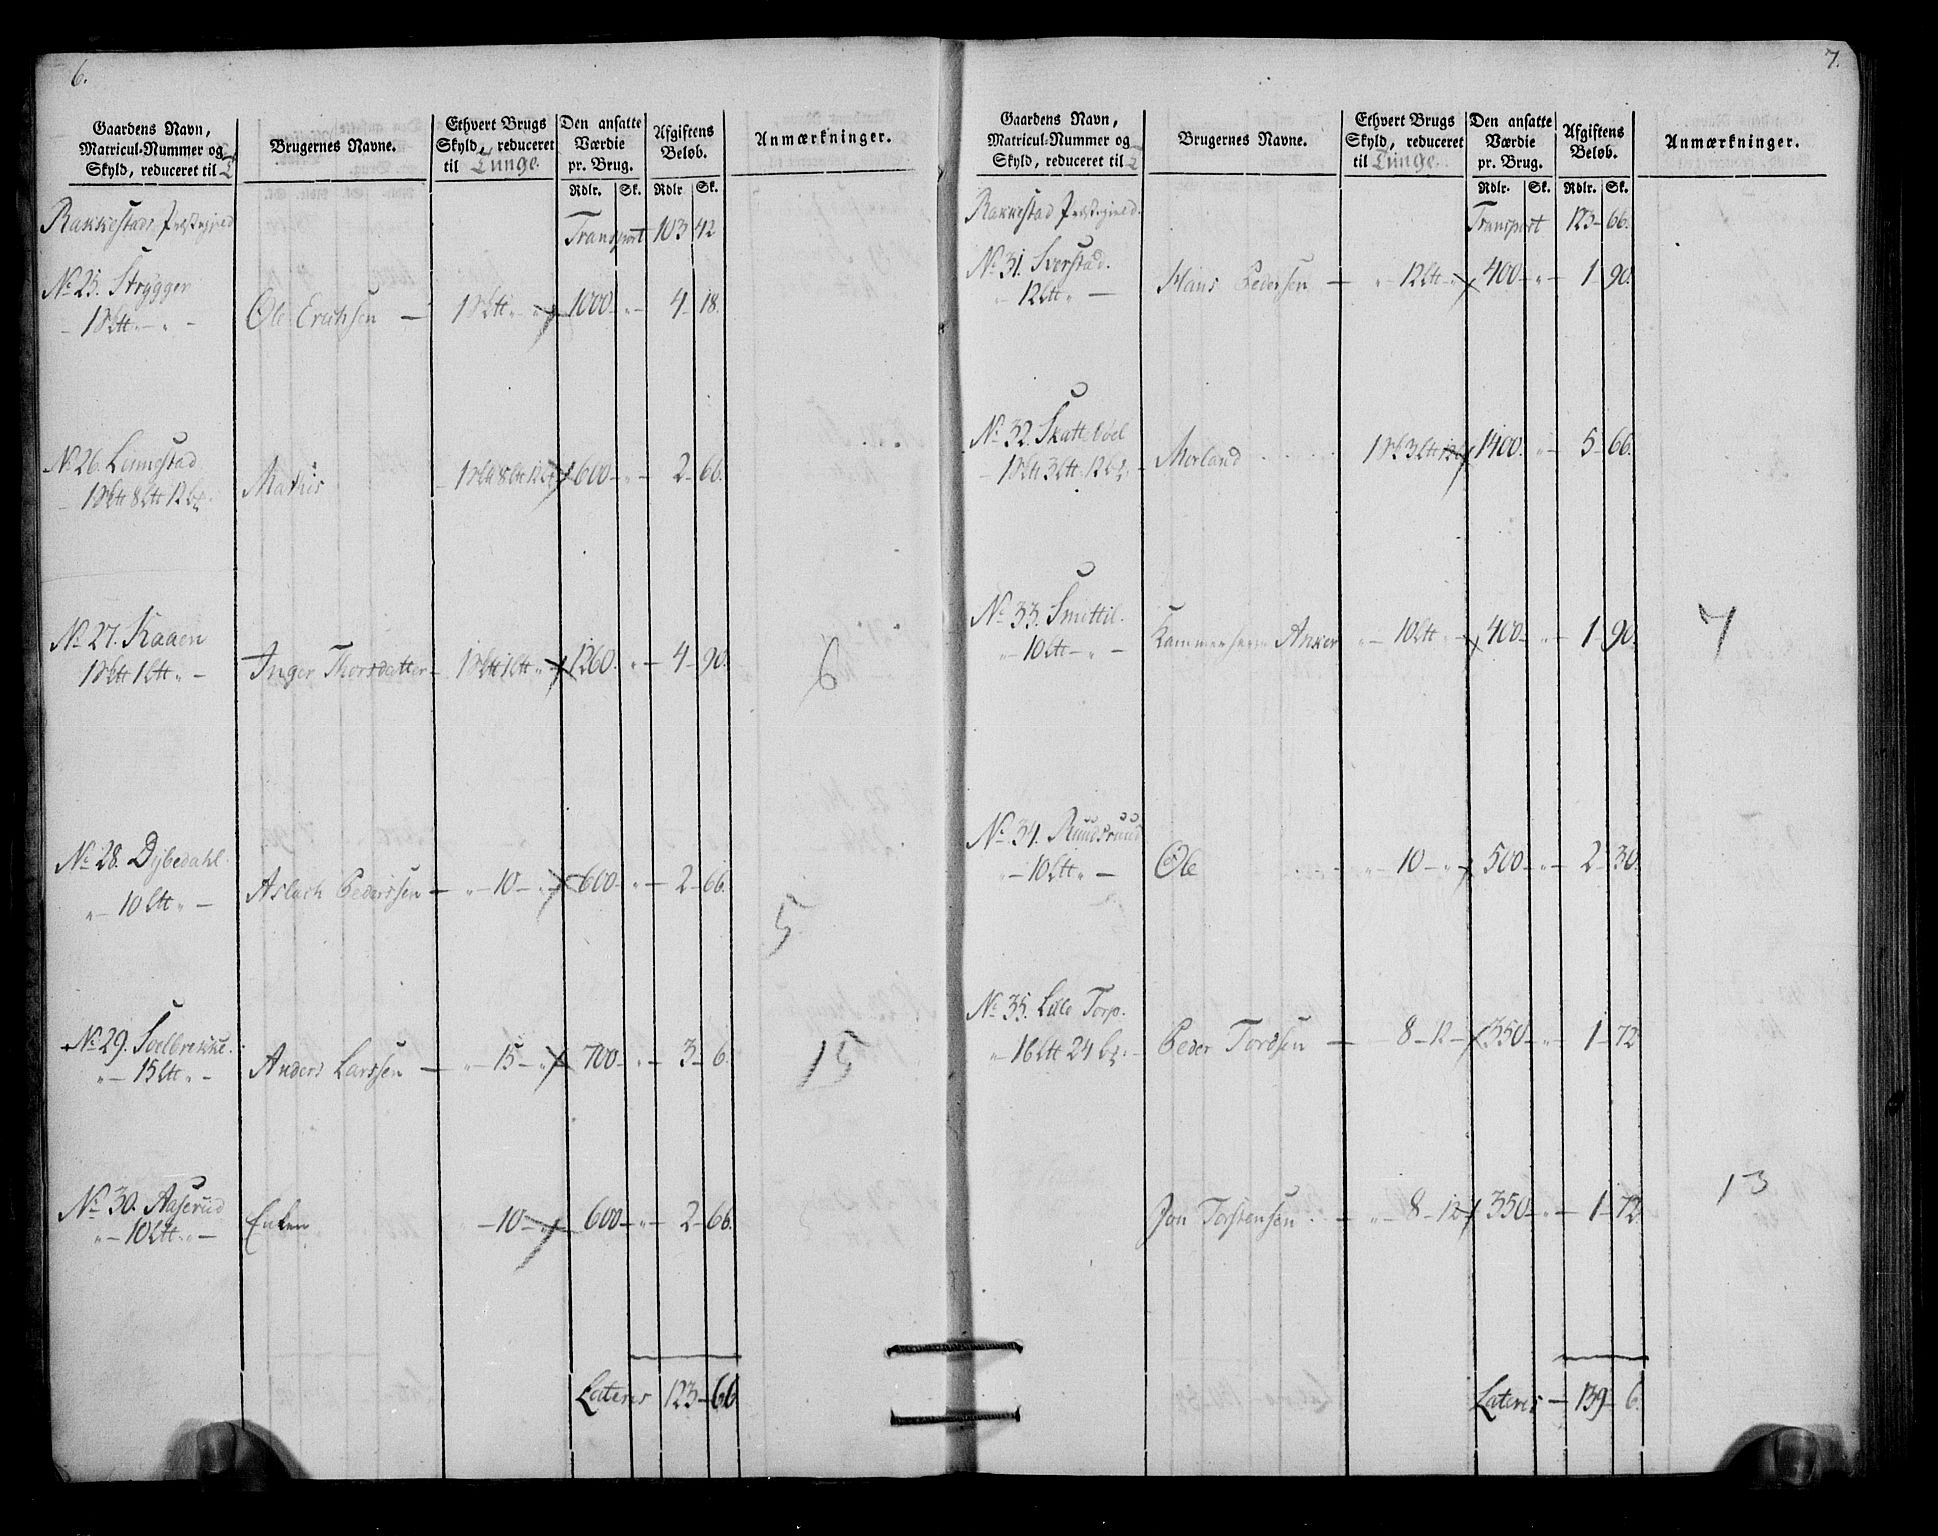 6.
Gaardens Navn,
Matricul-Nummer og
Skyld, reduceret til T
Brugernes Navne.
Ethvert Brugs
Skyld, reduceret
til Tunge.
Den ansatte
Værdie
pr. Brug.
Afgiftens
Beløb.
Anmærkninger.
Rdlr. Sk. Rdlr Sk.
Rakkestads Præstegield
Transport 103 42
No 25. Strygger
1 Sktt " "
Ole Erichsen — 1 Sktt " " 1000 - " - 4 - 18.
No 26. Lennestad
1 Sktt 8 Ltt 12 bz.
Mathis 1 Sktt 8 Ltt 12 bz 1600 - " - 2 - 66.
No 27. Kaaen
1 Sktt 1 Ltt " —
Inger Thorsdatter — 1 Sktt 1 Ltt " 1260. " - 4 - 90. 6
No 28. Dybedahl.
" — 10 Ltt " —
Aslach Pederssen — " — 10 — " 600 - " - 2 - 66.
5
No 29. Soelbrekke.
" — 15 Ltt " -
Anders Larssen — " — 15 — " 700 - " - 3 - 6. 15
No 30. Aaserud
" — 10 Ltt " —
Enken " — 10 — " 600 - " - 2 - 66.
Lateris 123 - 66
7.
Gaardens Navn,
Matricul-Nummer og
Skyld, reduceret til T
Brugernes Navne.
Ethvert Brugs
Skyld, reduceret
til Tunge.
Den ansatte
Værdie
pr. Brug.
Afgiftens
Beløb.
Anmærkninger.
Rdlr. Sk. Rdlr. Sk.
Rakkestad Præstegield.
Transport 123 - 66.
No 31. Sverstad.
" 12 Ltt " —
Hans Pedersen — " — 12 Ltt - " 400 - " - 1 - 90.
No 32. Skattebøel
— 1 Sktt 3 Ltt 12 bz.
Morland 1 Sk 3 Ltt 12 bz 1400. " - 5 - 66.
No 33. Smittil.
" — 10 Ltt - " —
Kammerherre Anker " — 10 Ltt " 400 - " - 1 - 90. 7
No 34. Ruudsruud
" — 10 Ltt " —
Ole " — 10 — " 500 - " - 2 - 30.
No 35. Lille Torp.
" 16 Ltt 24 bz. -
Peder Tordsen — 8 - 12 - 350 - " - 1 - 72
Jon Torstensen. — " — 8 - 12 350 - " - 1 - 72. 13
Lateris — 139 - 6.